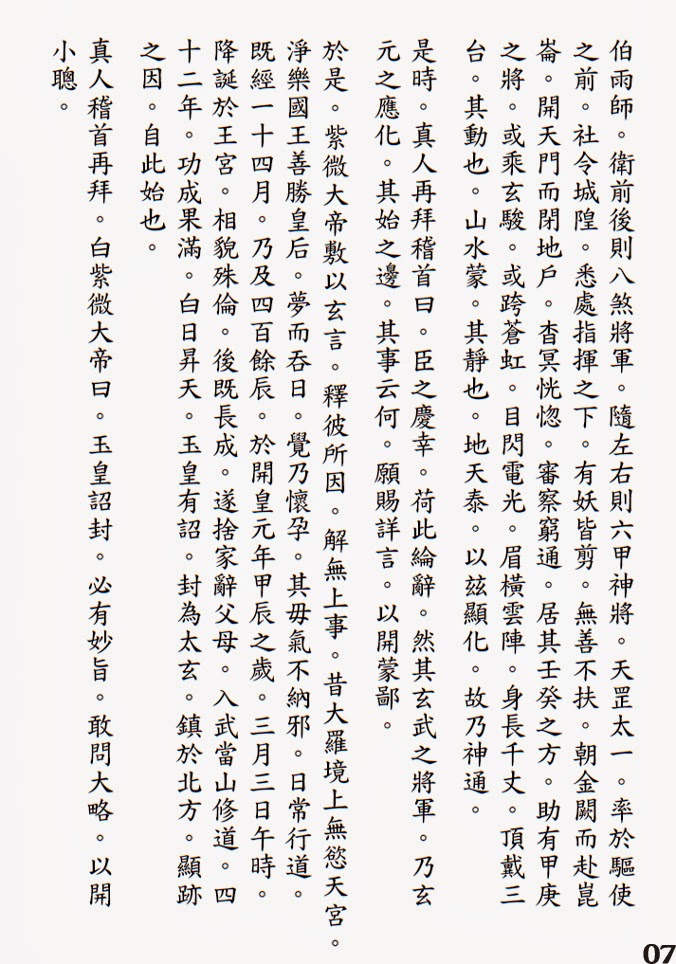 伯雨師。衛前後則八煞將軍。隨左右則六甲神將。天罡太一。率於驅使
之前。社令城隍。悉處指揮之下。有妖皆剪。無善不扶。朝金闕而赴崑
崙。開天門而閉地戶。杳冥恍惚。審察窮通。居其壬癸之方。助有甲庚
之將。或乘玄駿。或跨蒼虹。目閃電光。眉橫雲陣。身長千丈。頂戴三
台。其動也。山水蒙。其靜也。地天泰。以茲顯化。故乃神通。
是時。真人再拜稽首曰。臣之慶幸。荷此綸辭。然其玄武之將軍。乃玄
元之應化。其始之邊。其事云何。願賜詳言。以開蒙鄙。
於是。紫微大帝敷以玄言。釋彼所因。解無上事。昔大羅境上無慾天宮。
淨樂國王善勝皇后。夢而吞日。覺乃懷孕。其毋氣不納邪。日常行道。
既經一十四月。乃及四百餘辰。於開皇元年甲辰之歲。三月三日午時。
降誕於王宮。相貌殊倫。後既長成。遂捨家辭父母。入武當山修道。四
十二年。功成果滿。白日昇天。玉皇有詔。封為太玄。鎮於北方。顯跡
之因。自此始也。
真人稽首再拜。白紫微大帝曰。玉皇詔封。必有妙旨。敢問大略。以開
小聰。
07